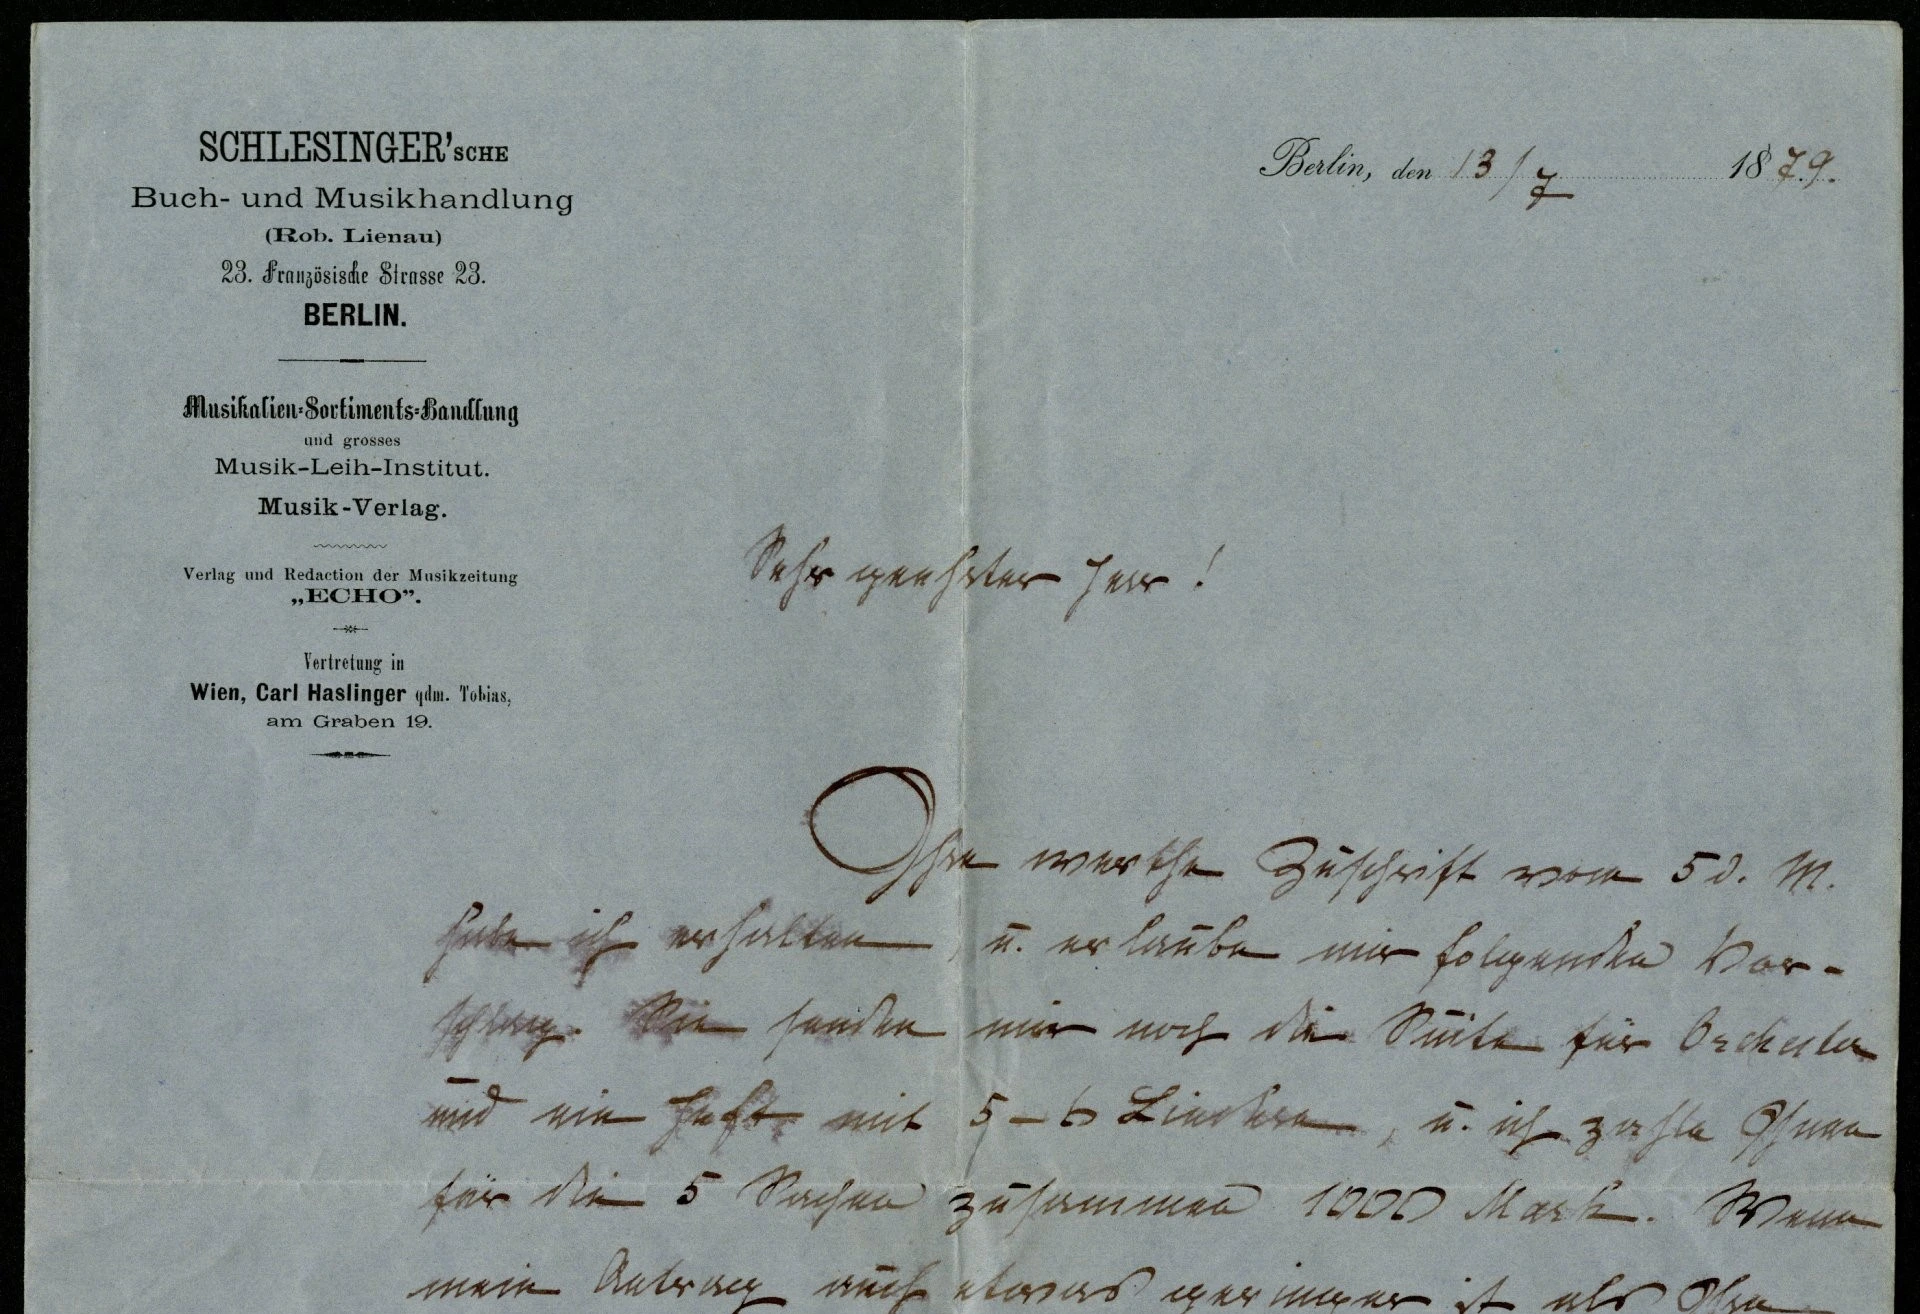 SCHLESINGER'SCHE
Buch- und Musikhandlung
(Rob. Lienau)
23. Französische Strasse 23.
BERLIN.
Musikalien-Sortiments-Handlung
und grosses
Musik-Leih-Institut.
Musik-Verlag.
Verlag und Redaction der Musikzeitung
„ECHO”.
Vertretung in
Wien, Carl Haslinger qdm. Tobias,
am Graben 19.
Berlin, den 13/7 1879.
Sehr geehrter Herr!
Ihre werthe Zuschrift vom 5 d. M.
habe ich erhalten, u. erlaube mir folgenden Vor-
schlag. Sie senden mir noch die Suite für Orchester
und ein Heft mit 5-6 Liedern, u. ich zahle Ihnen
für die 5 Sachen zusammen 1000 Mark. Wenn
mein Antrag auch etwas geringer ist als Ihre